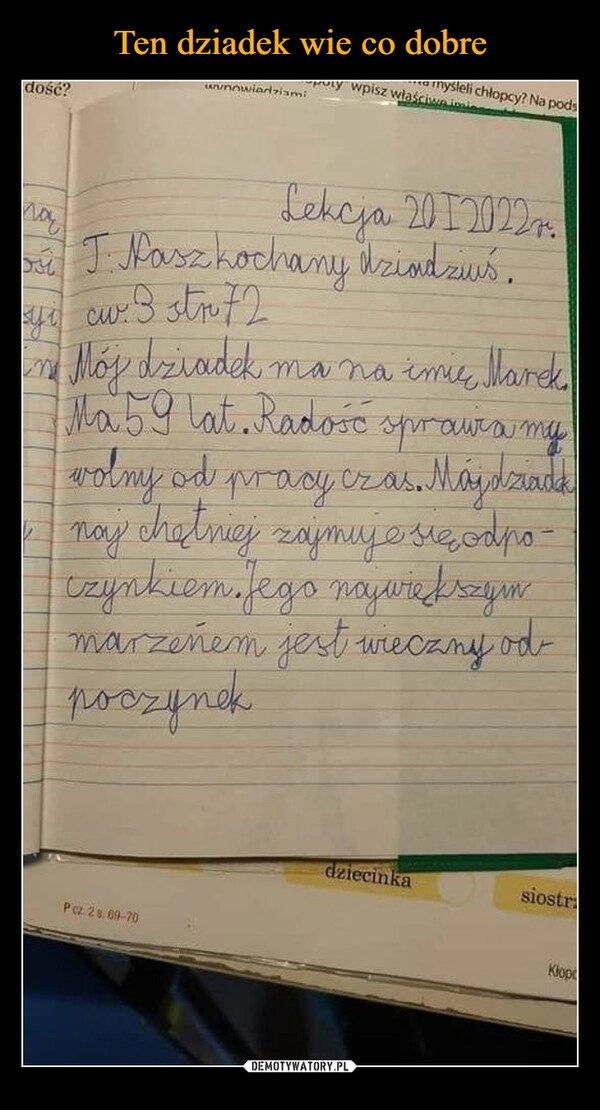 Ten dziadek wie co dobre
dość?
wypowiedziami
wpisz właściwe
myśleli chłopcy? Na pods
Lekcja 20 I 2022r.
T: Nasz kochany dziadziuś.
ćw. 3 str 72
Mój dziadek ma na imię Marek.
Ma 59 lat. Radość sprawia my
wolny od pracy czas. Mój dziadek
naj chętniej zajmuje się odpo-
czynkiem. Jego największym
marzeńem jest wieczny od-
poczynek
dziecinka
siostr
P cz. 2 s. 69-70
Kłopo
DEMOTYWATORY.PL